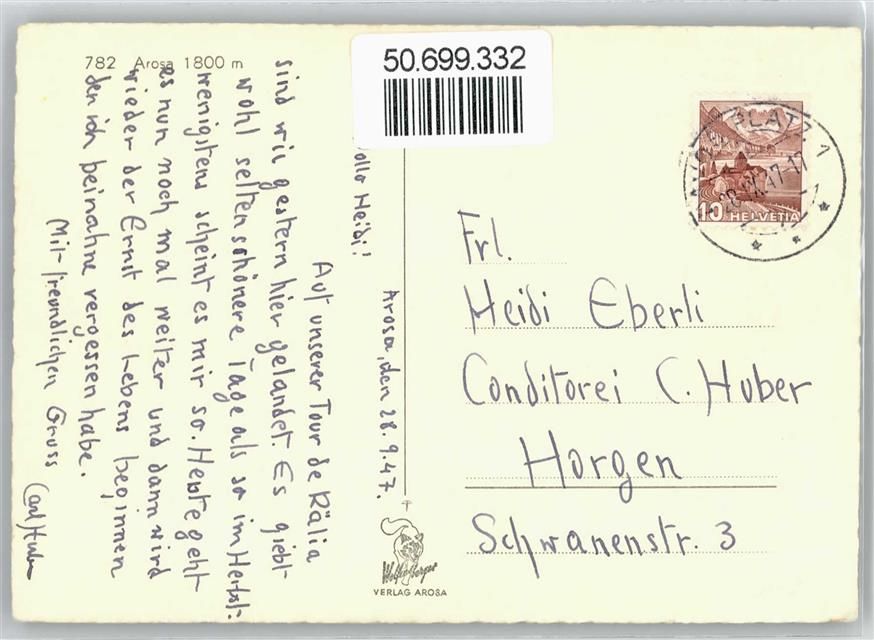 782 Arosa 1800 m
50.699.332
Arosa, den 28.9.47.
Hallo Heidi!
Auf unserer Tour de Rälia
sind wir gestern hier gelandet. Es giebt
wohl selten schönere Tage als so im Herbst.
Wenigstens scheint es mir so. Heute geht
es nun noch mal weiter und dann wird
wieder der Ernst des Lebens beginnen
den ich beinahe vergessen habe.
Mit freundlichen Gruss
Carl Huber
Frl.
Heidi Eberli
Conditorei C. Huber
Horgen
Schwanenstr. 3
10 HELVETIA
PLATZ 1
28.IX.47-17
VERLAG AROSA